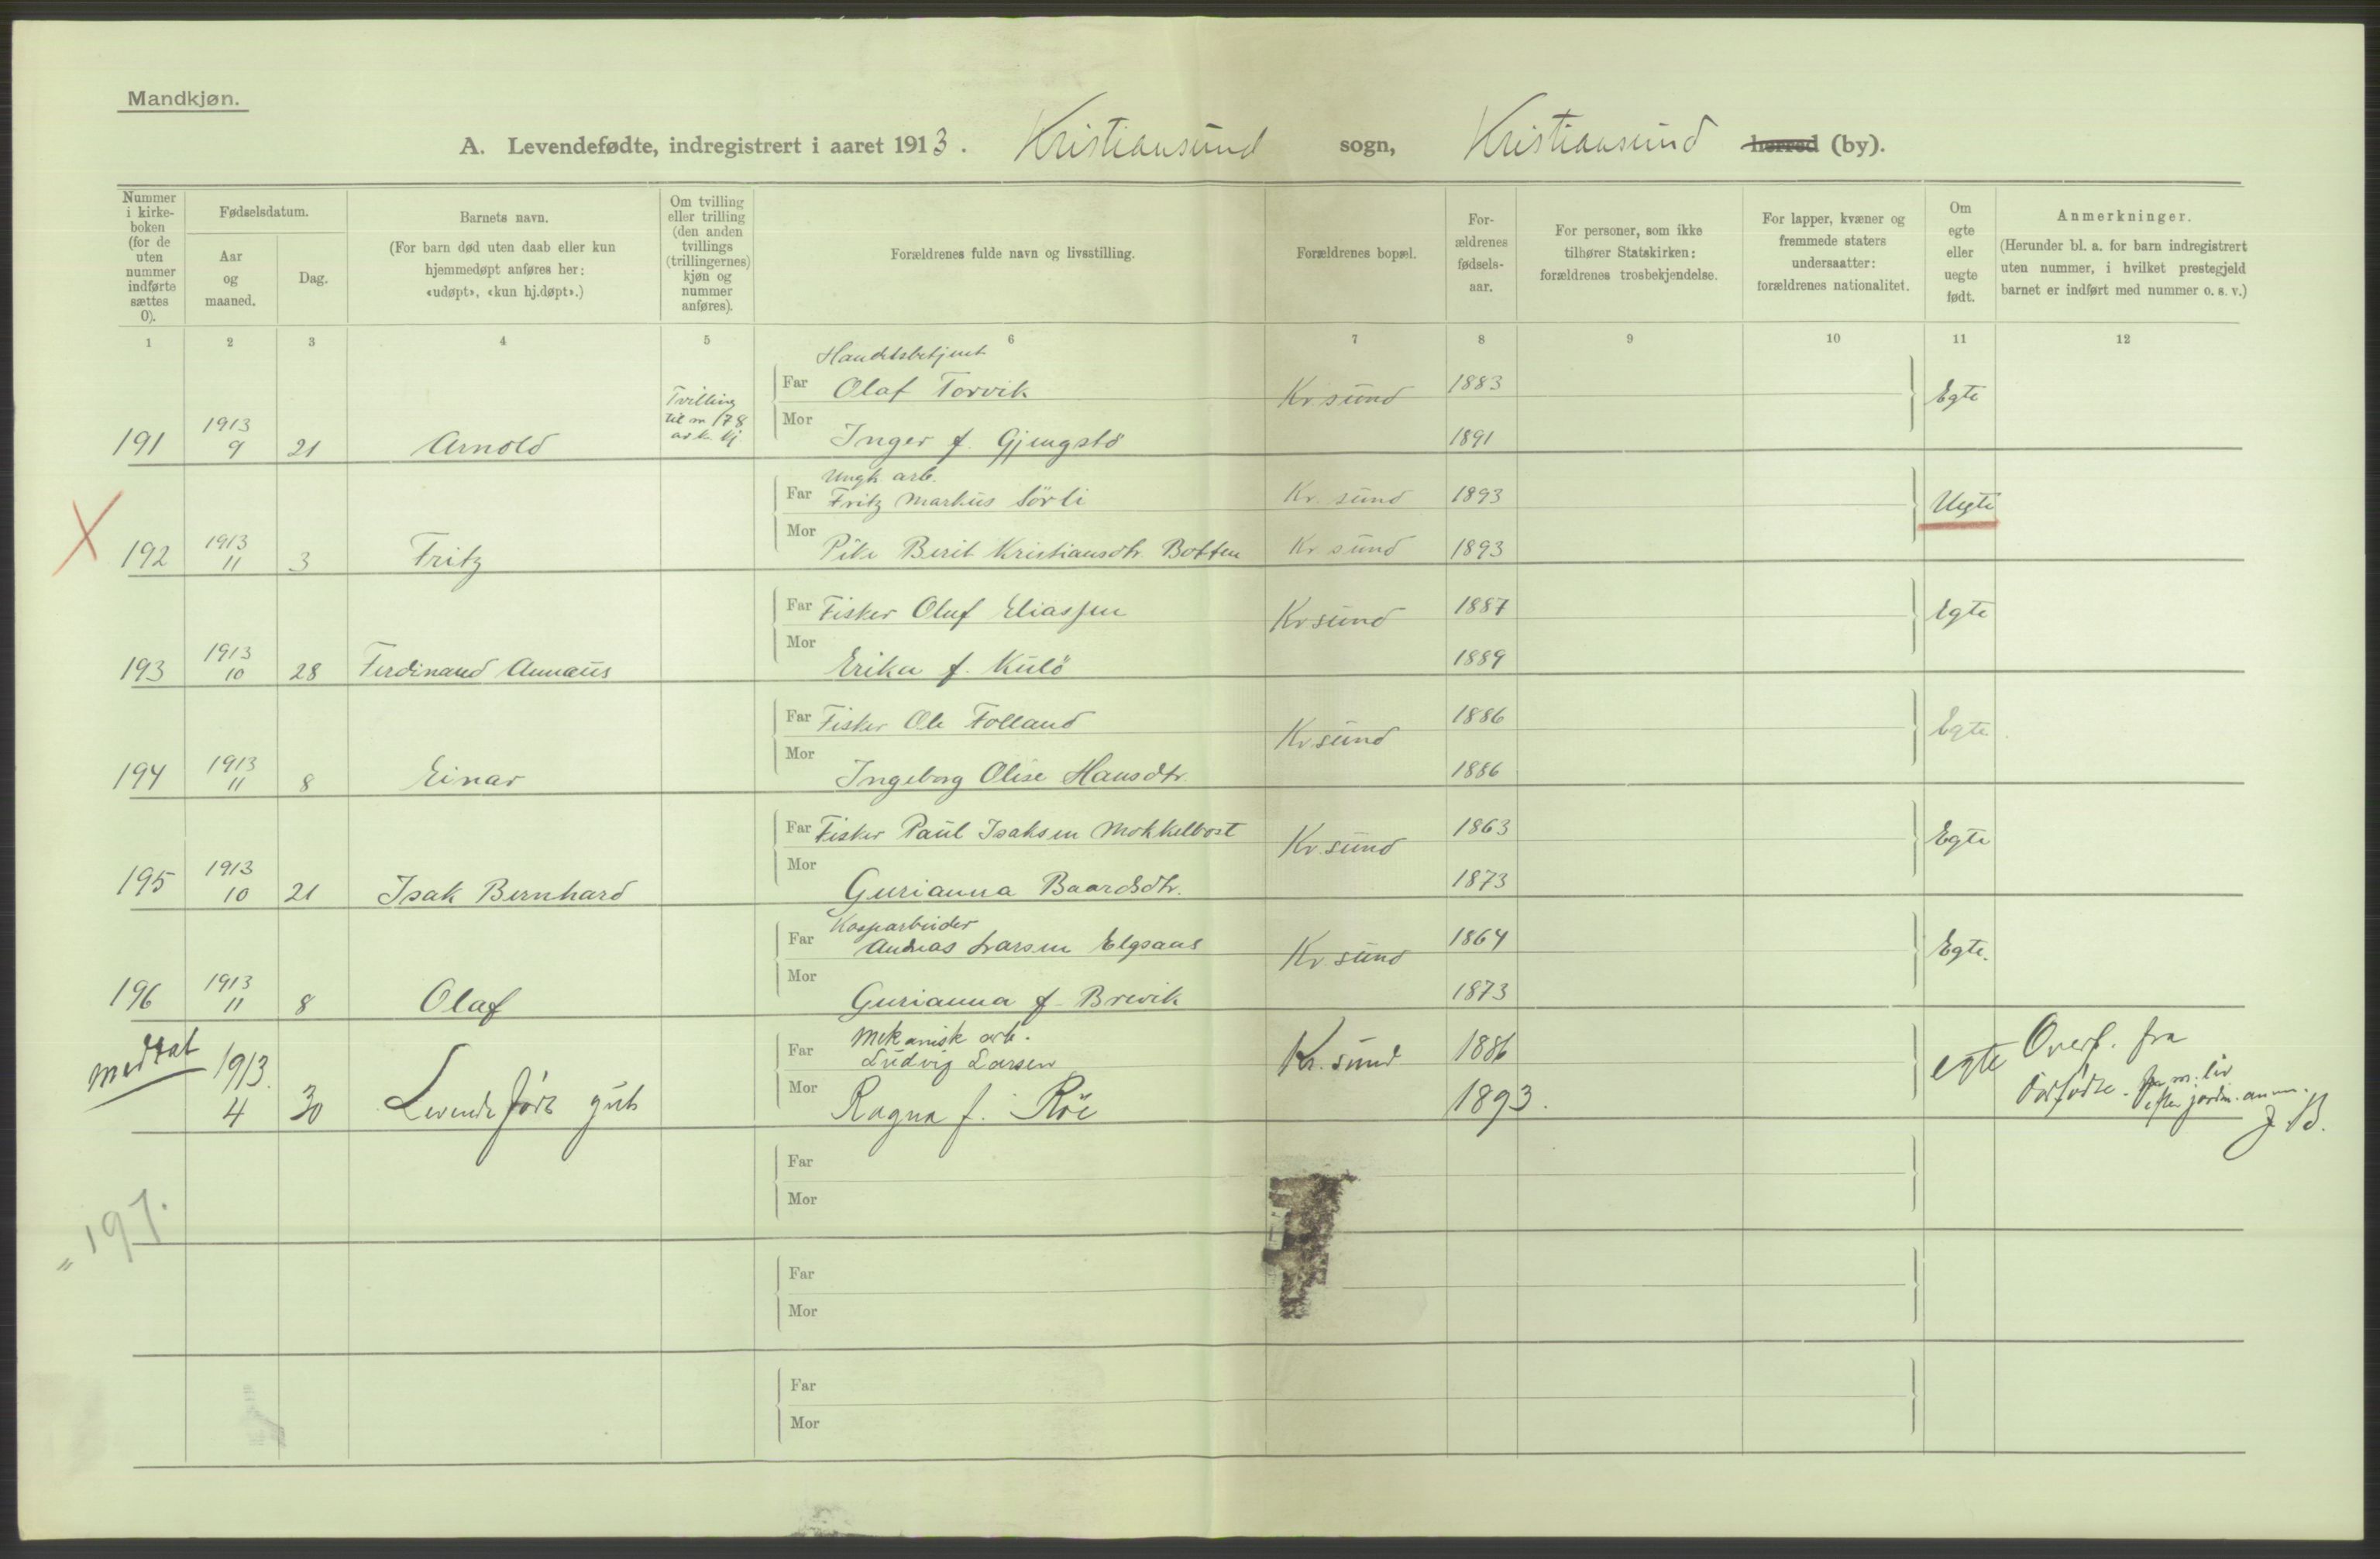 Mandkjøn.
A. Levendefødte, indregistrert i aaret 1913. Kristiansund sogn, Kristiansund herred (by).
Nummer i kirke-boken (for de uten nummer indførte sættes 0).
Fødselsdatum.
Aar og maaned.
Dag.
Barnets navn.
(For barn død uten daab eller kun hjemmedøpt anføres her: «udøpt», «kun hj.døpt».)
Om tvilling eller trilling (den anden tvillings (trillingernes) kjøn og nummer anføres).
Forældrenes fulde navn og livsstilling.
Forældrenes bopæl.
For-ældrenes fødsels-aar.
For personer, som ikke tilhører Statskirken: forældrenes trosbekjendelse.
For lapper, kvæner og fremmede staters undersaatter: forældrenes nationalitet.
Om egte eller uegte født.
Anmerkninger.
(Herunder bl. a. for barn indregistrert uten nummer, i hvilket prestegjeld barnet er indført med nummer o. s. v.)
1 2 3 4 5 6 7 8 9 10 11 12
Handelsbetjent
Far Olaf Torvik Kr.sund 1883 Egte
Tvilling til nr 178
191 1913 9 21 Arnold Mor Inger f. Gjengstö 1891
Ungk. arb.
Far Fritz Markus Sörli Kr. sund 1893 Uegte
X 192 1913 11 3 Fritz Mor Pike Berit Kristiansdtr. Botten Kr sund 1893
Far Fisker Oluf Eliassen Kr sund 1887 Egte
193 1913 10 28 Ferdinand Annæus Mor Erika f. Kulö 1889
Far Fisker Ole Folland Kr sund 1886 Egte
194 1913 11 8 Einar Mor Ingeborg Olise Hansdtr. 1886
Far Fisker Paul Isaksen Mokkelbost Kr. sund 1863 Egte
195 1913 10 21 Isak Bernhard Mor Gurianna Baardsdtr. 1873
Far Andreas Larsen Elgsaas Kr. sund 1864 Egte.
196 1913 11 8 Olaf Mor Gurianna f. Brevik 1873
Mekanisk arb.
medtat Far Ludvig Larsen Kr. sund 1886 egte Overf. fra
1913. 4 30 Levendefödt gut Mor Ragna f. Röe 1893. dödfödte. liv
efter jordm. anm.
J. B.
Far
Mor
" 197.
Far
Mor
Far
Mor